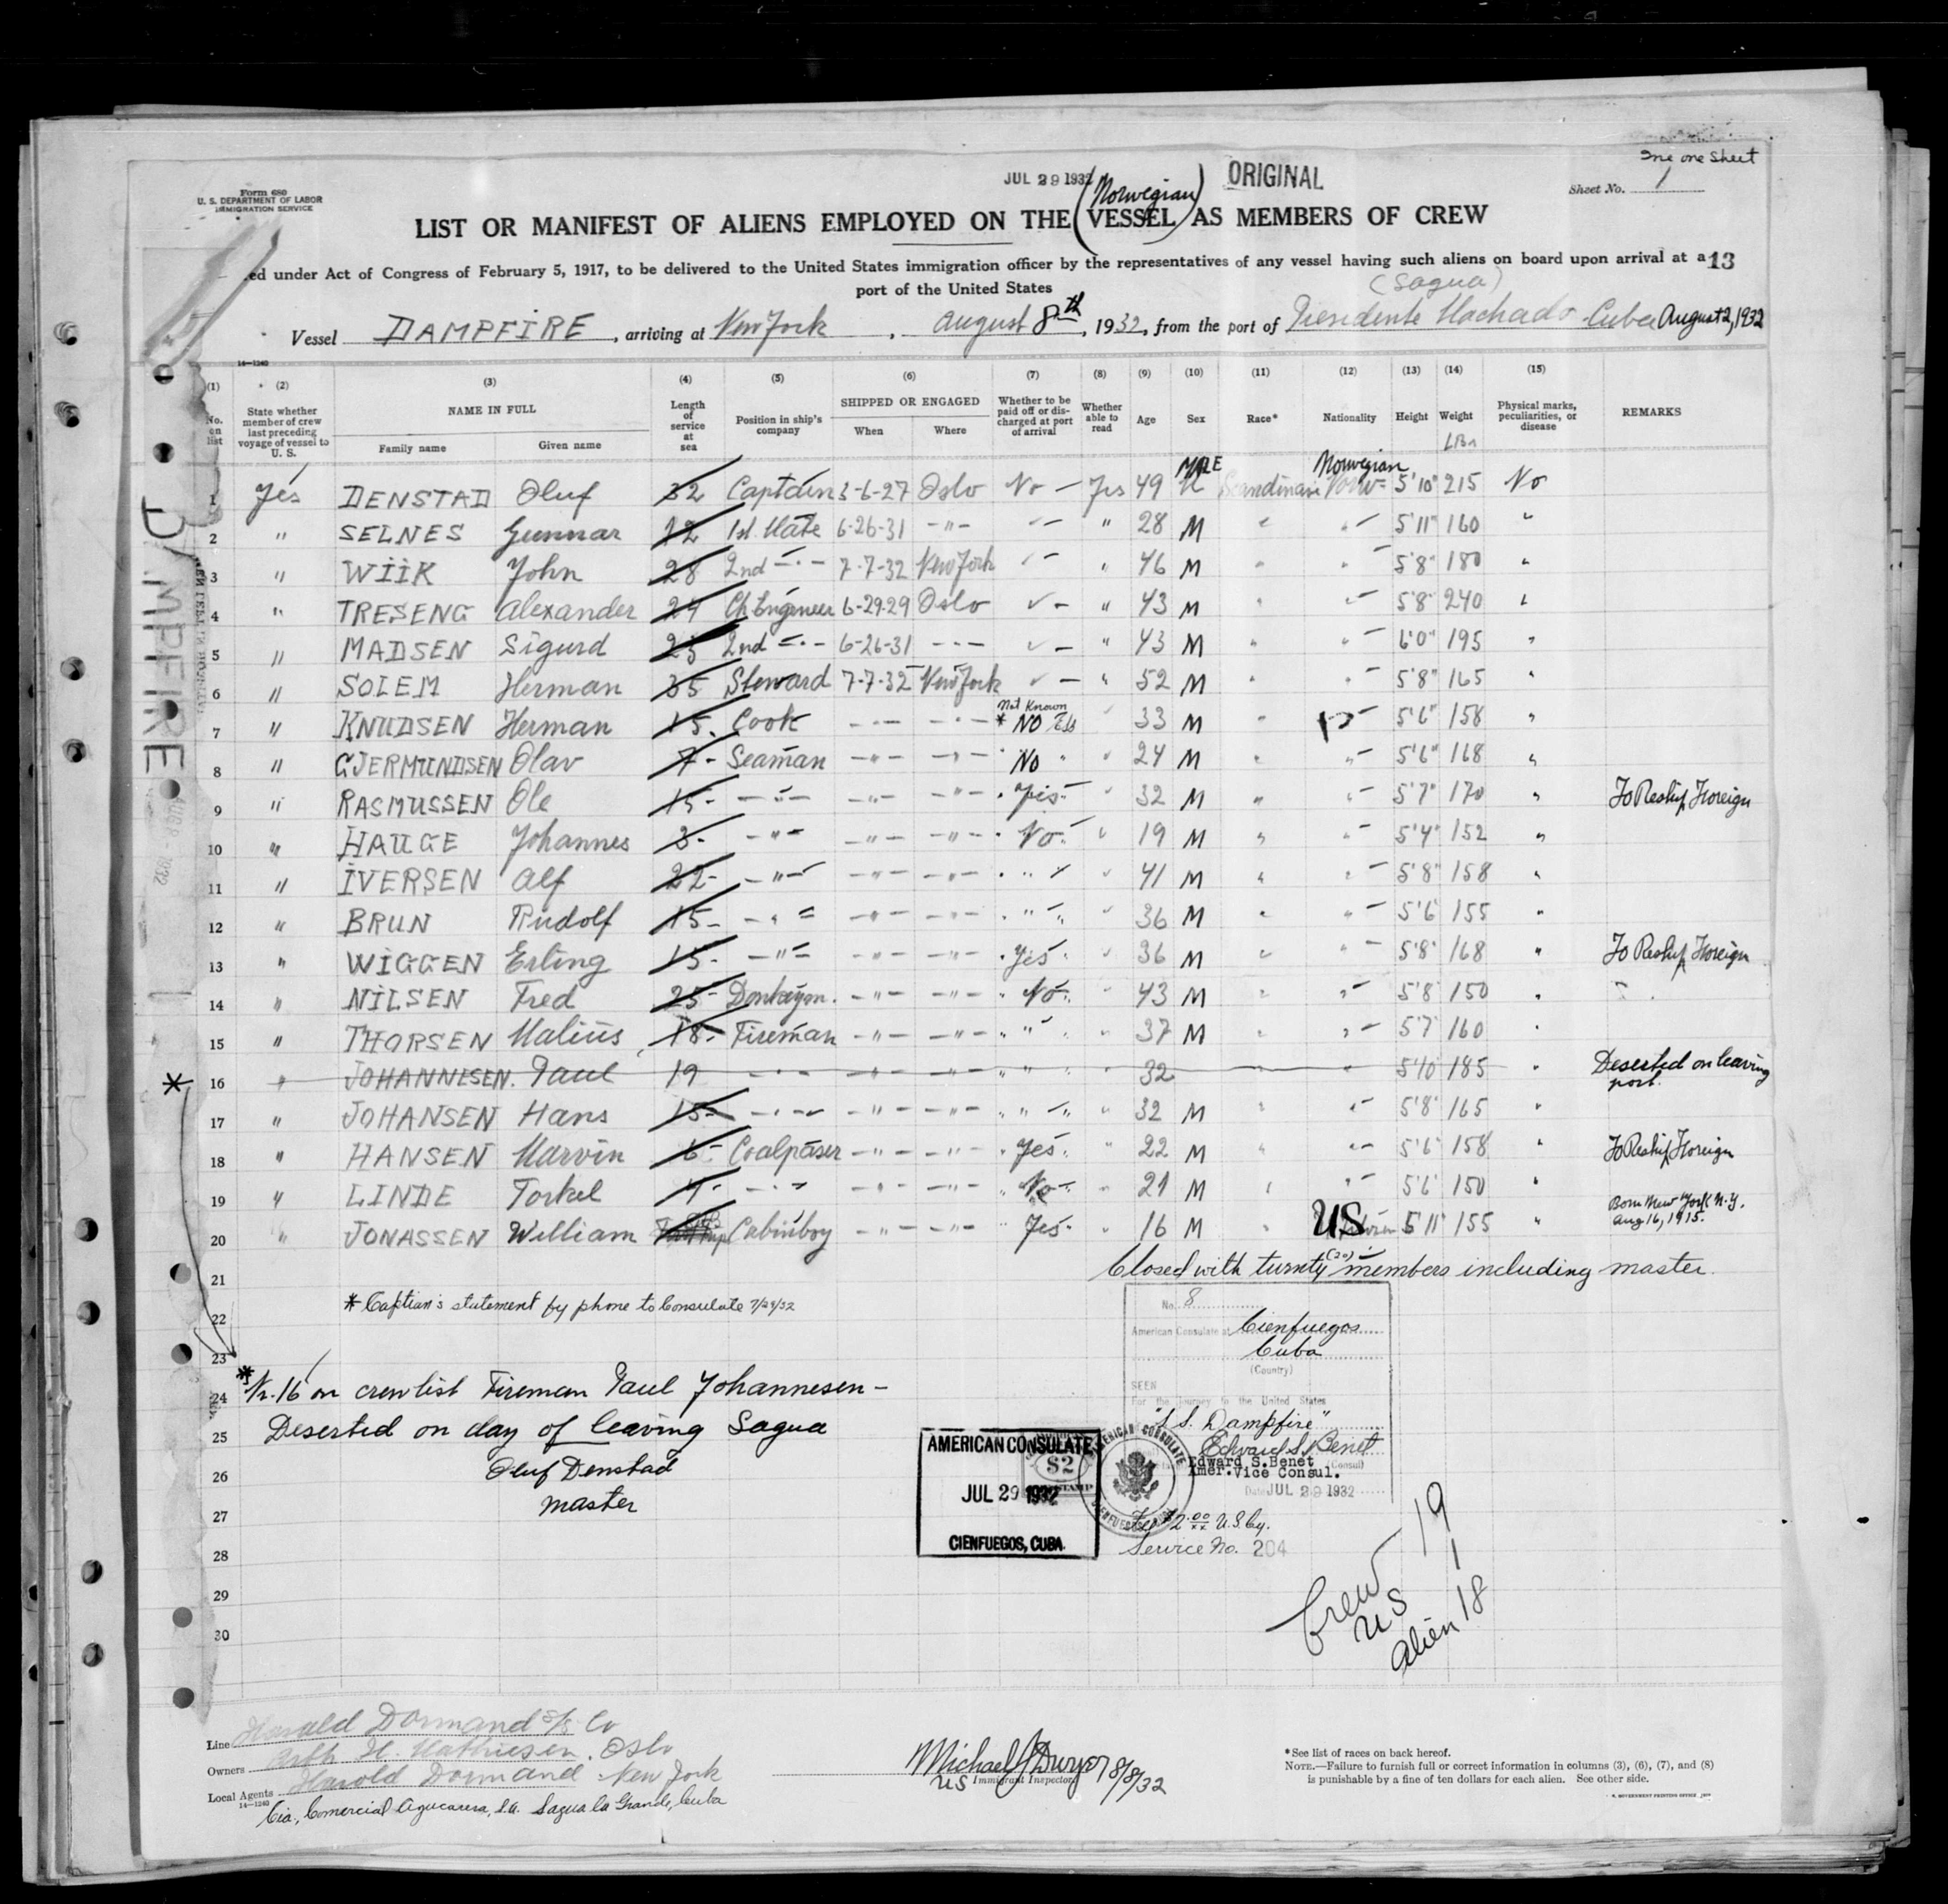 One one sheet
JUL 29 1932
ORIGINAL
Form 680
U. S. DEPARTMENT OF LABOR
IMMIGRATION SERVICE
Sheet No. 1
(Norwegian)
LIST OR MANIFEST OF ALIENS EMPLOYED ON THE VESSEL AS MEMBERS OF CREW
ed under Act of Congress of February 5, 1917, to be delivered to the United States immigration officer by the representatives of any vessel having such aliens on board upon arrival at a 13
port of the United States
(Sagua)
Vessel DAMPFIRE, arriving at New York, August 8th, 1932, from the port of Presidente Machado Cuba August 2, 1932
14—1240
(1) (2) (3) (4) (5) (6) (7) (8) (9) (10) (11) (12) (13) (14) (15)
No. on list | State whether member of crew last preceding voyage of vessel to U. S. | NAME IN FULL Family name Given name | Length of service at sea | Position in ship's company | SHIPPED OR ENGAGED When Where | Whether to be paid off or discharged at port of arrival | Whether able to read | Age | Sex | Race* | Nationality | Height | Weight Lbs | Physical marks, peculiarities, or disease | REMARKS
1 Yes DENSTAD Oluf 32 Captain 3-6-27 Oslo No — Yes 49 MALE Scandinavi Norwegian 5'10" 215 No
2 " SELNES Gunnar 12 1st Mate 6-26-31 -"- " 28 M 5'11" 160 "
3 " WIIK John 28 2nd -"- 7-7-32 New York " 46 M 5'8" 180 "
4 " TRESENG Alexander 24 Ch Engineer 6-29-29 Oslo " 43 M 5'8" 240 "
5 " MADSEN Sigurd 25 2nd -"- 6-26-31 -"- " 43 M 6'0" 195 "
6 " SOLEM Herman 35 Steward 7-7-32 New York " 52 M 5'8" 165 "
Not Known
7 " KNUDSEN Herman 15 Cook -"- -"- * NO " 33 M 5'6" 158 "
8 " GJERMUNDSEN Olav 7 - Seaman -"- -"- No " 24 M 5'6" 168 "
9 " RASMUSSEN Ole 15 - -"- -"- -"- Yes " 32 M 5'7" 170 " To Reship Foreign
10 " HAUGE Johannes 3 - -"- -"- -"- No " 19 M 5'4" 152 "
11 " IVERSEN Alf 22 - -"- -"- -"- " 41 M 5'8" 158 "
12 " BRUN Rudolf 15 - -"- -"- -"- " 36 M 5'6" 155 "
13 " WIGGEN Erling 15 - -"- -"- -"- Yes " 36 M 5'8" 168 " To Reship Foreign
14 " NILSEN Fred 25 - Donkeym. -"- -"- No " 43 M 5'8" 150 "
15 " THORSEN Malius 18 - Fireman -"- -"- " 37 M 5'7" 160 "
* 16 " JOHANNESEN. Paul 19 -"- -"- -"- " 32 5'10" 185 " Deserted on leaving port.
17 " JOHANSEN Hans 15 - -"- -"- -"- " 32 M 5'8" 165 "
18 " HANSEN Marvin 6 - Coalpaser -"- -"- Yes " 22 M 5'6" 158 " To Reship Foreign
19 " LINDE Torkel 4 - -"- -"- -"- No " 21 M 5'6" 150 "
20 " JONASSEN William Cabinboy -"- -"- Yes " 16 M US Citizen 5'11" 155 " Born New York N.Y. Aug 16, 1915.
21 Closed with twenty (20) members including master.
22 * Captian's statement by phone to Consulate 7/29/32
No. 8
American Consulate at Cienfuegos
Cuba
(Country)
SEEN
For the journey to the United States
"S.S. Dampfire"
Edward S. Benet
Edward S. Benet (Consul)
Amer. Vice Consul.
Date JUL 29 1932
Fee $2.00 U.S. Cy.
Service No. 204
23
24 * Nr. 16 on crewlist Fireman Paul Johannesen -
25 Deserted on day of leaving Sagua
26 Oluf Denstad
27 Master
28
29
30
AMERICAN CONSULATE
JUL 29 1932
CIENFUEGOS, CUBA
AMERICAN CONSULATE
CIENFUEGOS
$2
STAMP
Crew 19
US 1
Alien 18
DAMPFIRE
AUG 8 - 1932
Line Harald Dormand S/S Co
Owners H. Mathiesen. Oslo
Local Agents Harold Dormand New York
14—1240
Cia. Comercial Azucarera, S.A. Sagua la Grande, Cuba
Michael J Dwyer 8/8/32
US Immigrant Inspector
*See list of races on back hereof.
NOTE.—Failure to furnish full or correct information in columns (3), (6), (7), and (8)
is punishable by a fine of ten dollars for each alien. See other side.
GOVERNMENT PRINTING OFFICE